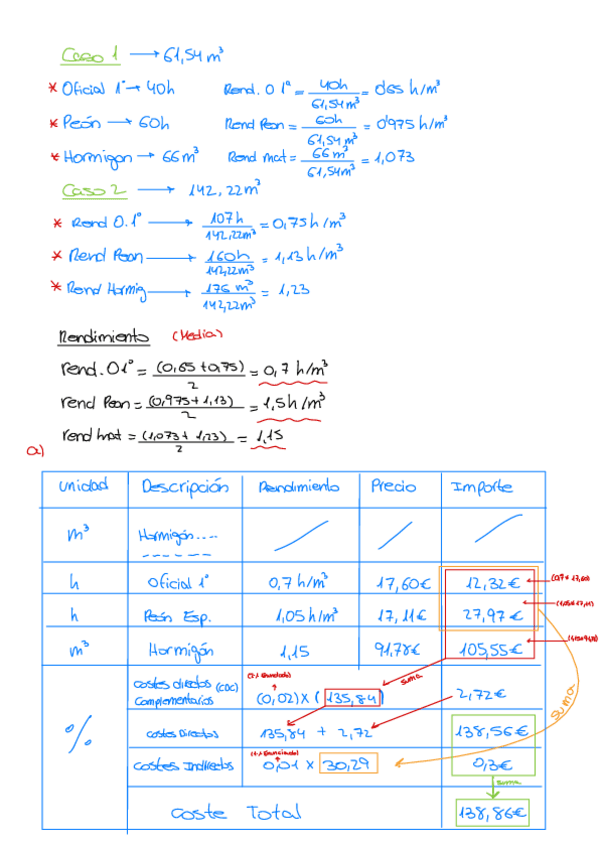 Caso 1 → 61,54 m³
* Oficial 1º → 40h Rend. O 1ª = 40h / 61,54m³ = 0'65 h/m³
* Peón → 60h Rend Peon = 60h / 61,54 m³ = 0'975 h/m³
* Hormigon → 66m³ Rend mat = 66 m³ / 61,54m³ = 1,073
Caso 2 → 142,22m³
* Rend O.1º → 107h / 142,22m³ = 0,75h/m³
* Rend Peon → 160h / 142,22m³ = 1,13h/m³
* Rend Hormig → 176 m³ / 142,22m³ = 1,23
Rendimiento (Media)
rend. O1º = (0,65 + 0,75) / 2 = 0,7 h/m³
rend Peon = (0,975 + 1,13) / 2 = 1,5h/m³
rend mat = (1,073 + 1,23) / 2 = 1,15
a)
unidad Descripción Rendimiento Precio Importe
m³ Hormigón....
h Oficial 1º 0,7 h/m³ 17,60€ 12,32€ (0,7 × 17,60)
h Peón Esp. 1,05h/m³ 17,11€ 27,97€ (1,05×17,11)
m³ Hormigón 1,15 91,78€ 105,55€
% costes directos (CDC) Complementarios (0,02) × (135,84) suma 2,72€
costes Directos 135,84 + 2,72 138,56€
costes Indirectos 0,01 × 30,29 0,3€
suma
suma
Coste Total 138,86€